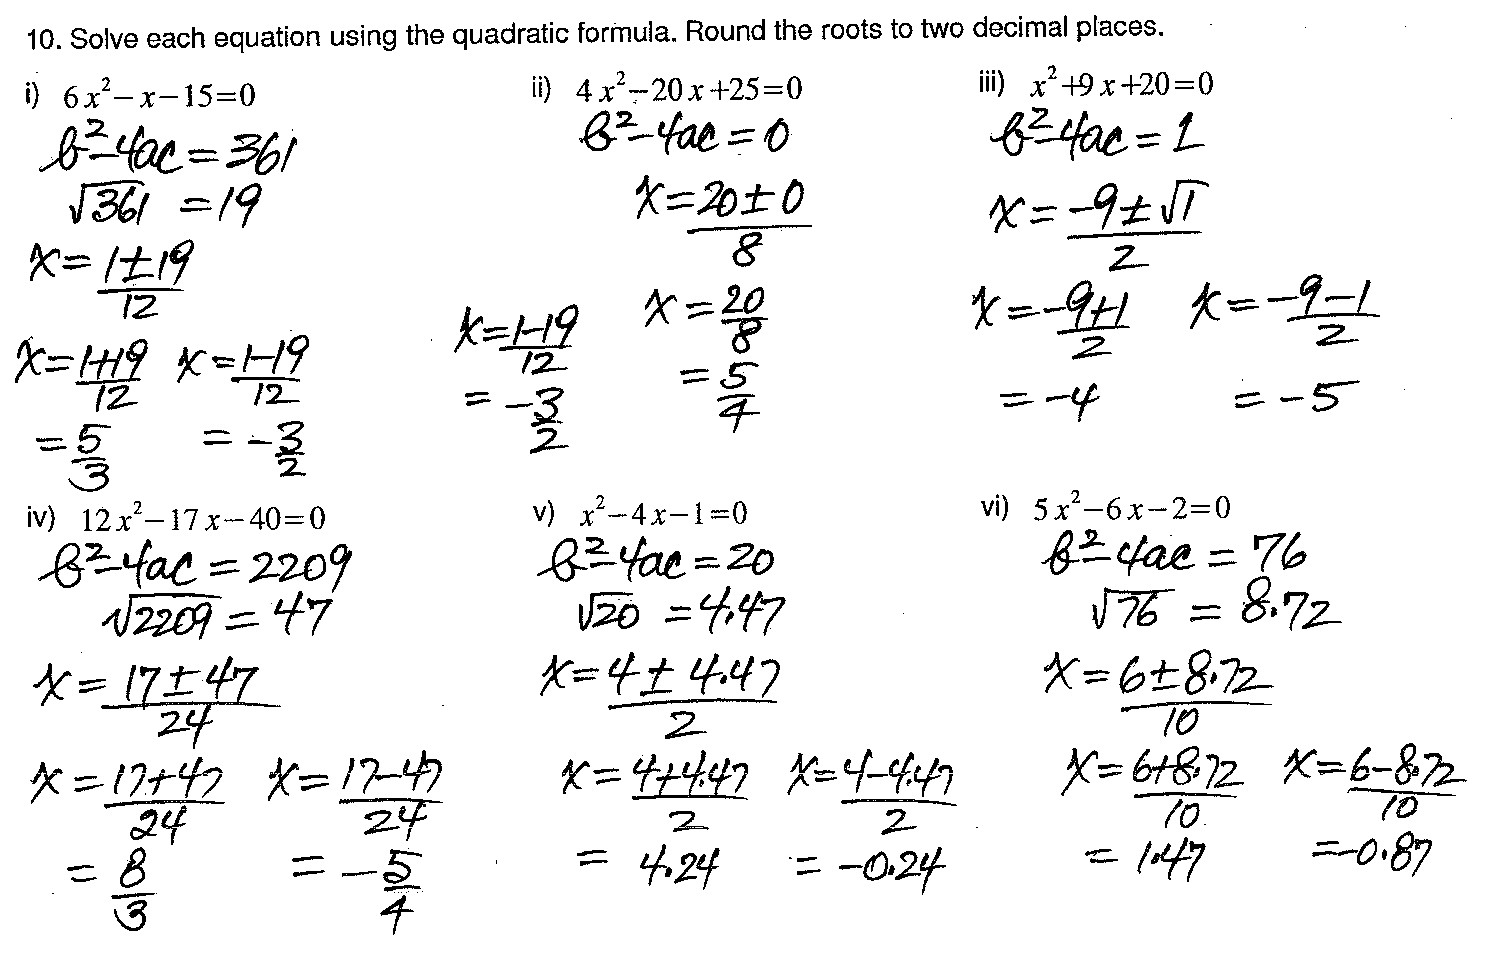 10. Solve each equation using the quadratic formula. Round the roots to two decimal places.
i) 6x²−x−15=0
b²-4ac = 361
√361 = 19
x = 1±19/12
x = 1+19/12 x = 1-19/12
= 5/3 = -3/2
ii) 4x²−20x+25=0
b²-4ac = 0
x = 20±0/8
x = 1-19/12 x = 20/8
= -3/2 = 5/4
iii) x²+9x+20=0
b²-4ac = 1
x = -9±√1/2
x = -9+1/2 x = -9-1/2
= -4 = -5
iv) 12x²−17x−40=0
b²-4ac = 2209
√2209 = 47
x = 17±47/24
x = 17+47/24 x = 17-47/24
= 8/3 = -5/4
v) x²−4x−1=0
b²-4ac = 20
√20 = 4.47
x = 4±4.47/2
x = 4+4.47/2 x = 4-4.47/2
= 4.24 = -0.24
vi) 5x²−6x−2=0
b²-4ac = 76
√76 = 8.72
x = 6±8.72/10
x = 6+8.72/10 x = 6-8.72/10
= 1.47 = -0.87